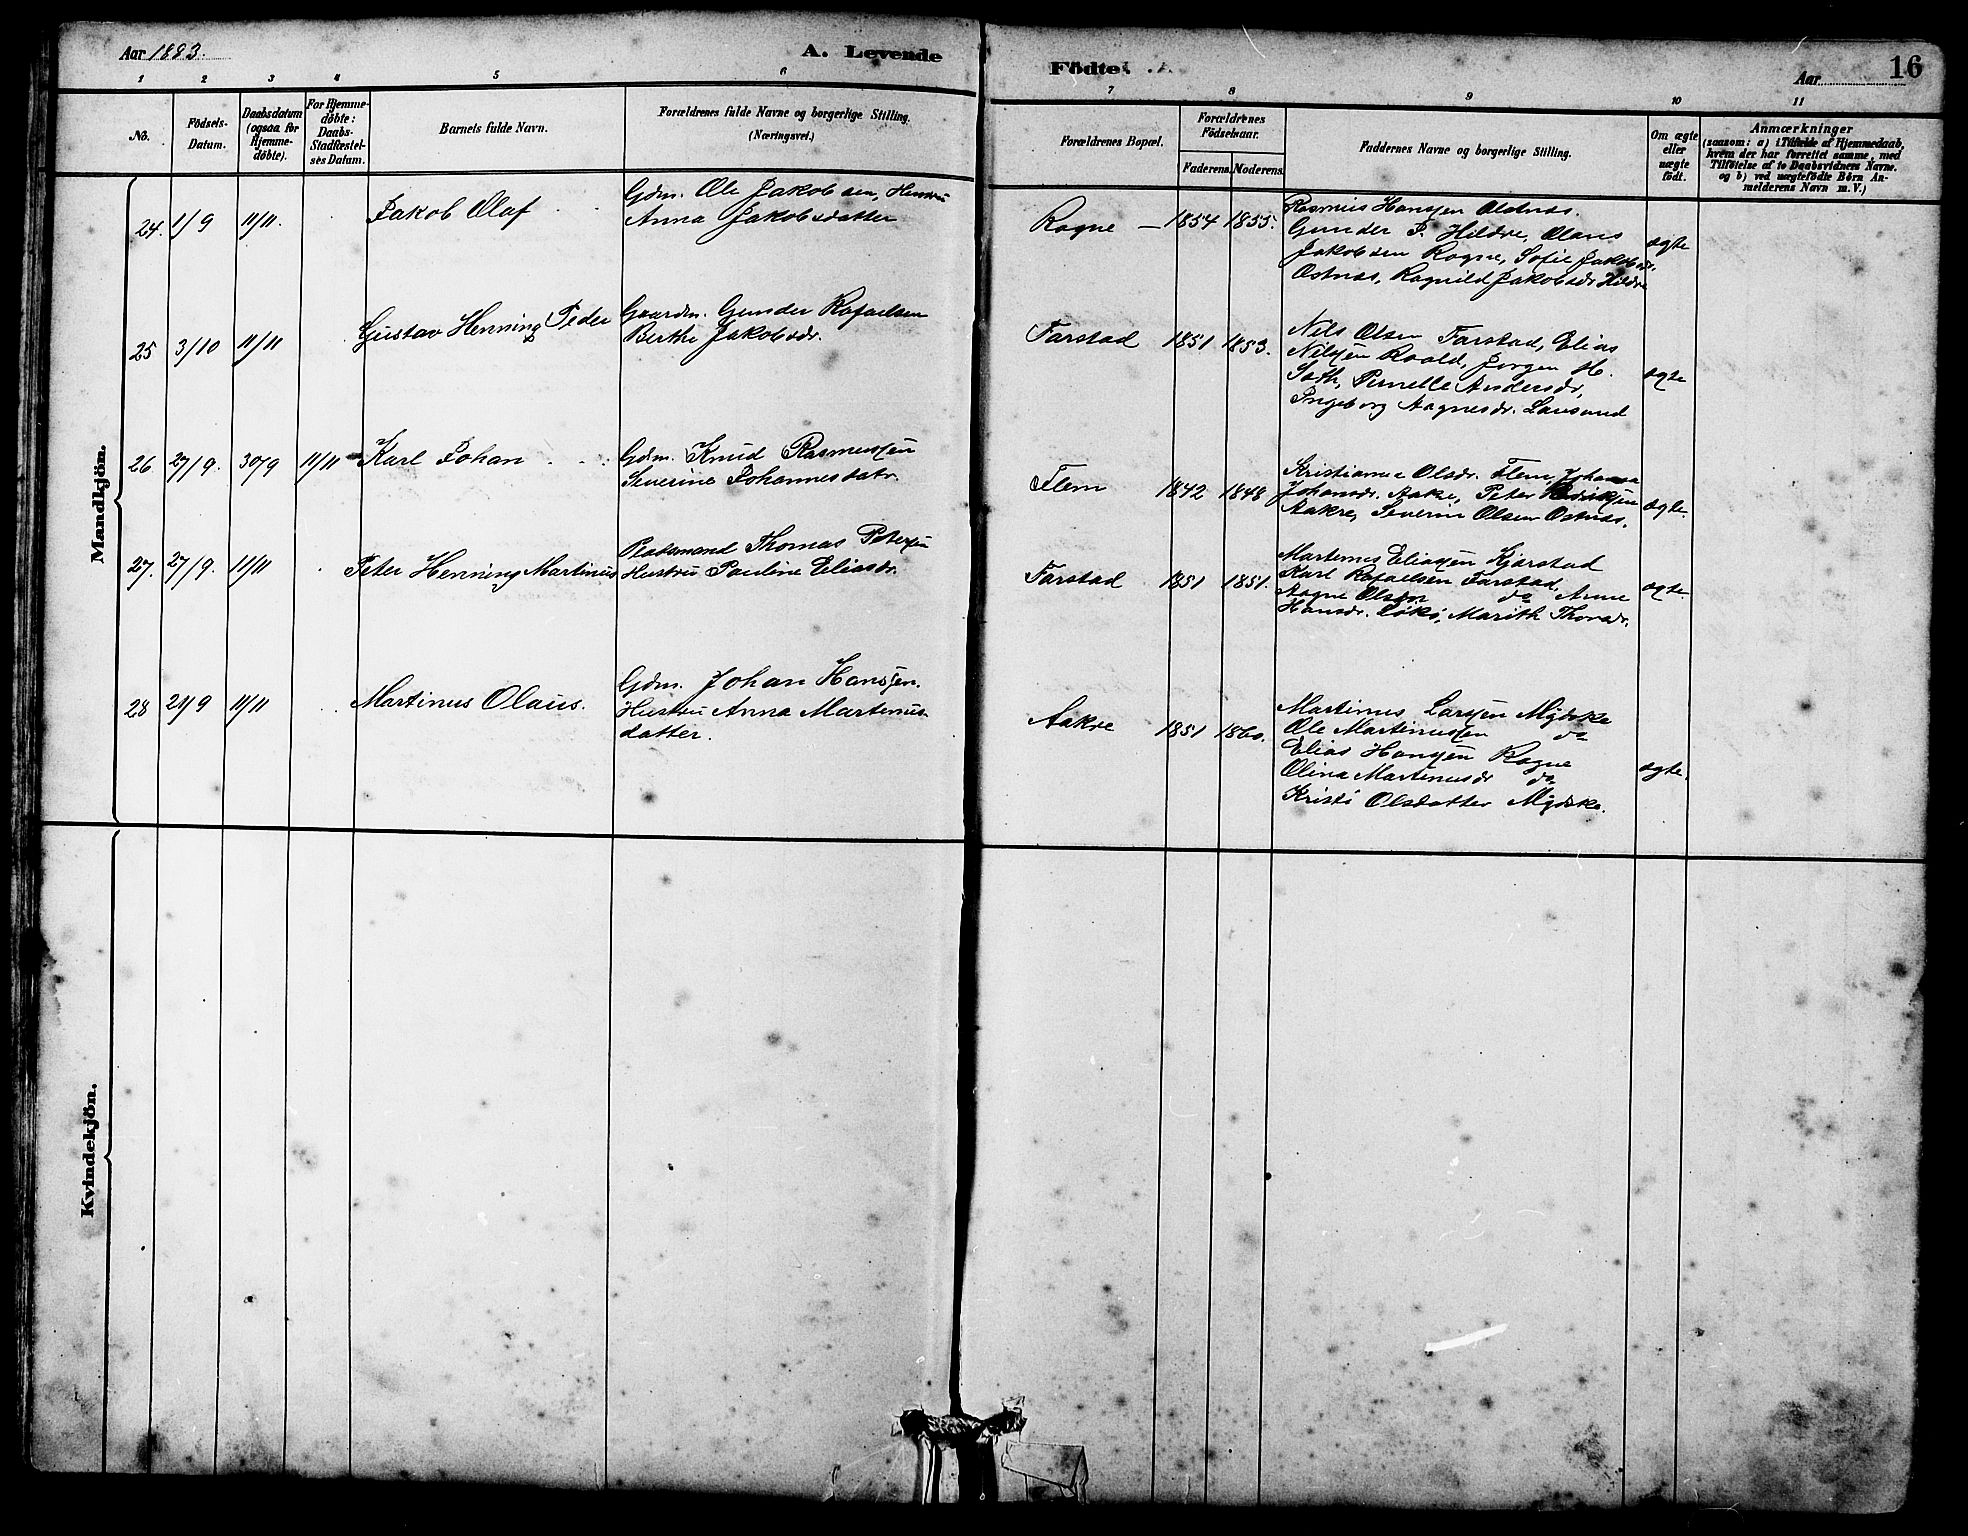 Aar 1883.
A. Levende
Födte.
Aar
16
1 2 3 4 5 6 7 8 9 10 11
No.
Födsels-
Datum.
Daabsdatum
(ogsaa for
Hjemme-
døbte).
For Hjemme-
døbte:
Daabs-
Stadfæstel-
ses Datum.
Barnets fulde Navn.
Forældrenes fulde Navne og borgerlige Stilling.
(Næringsvei.)
Forældrenes Bopæl.
Forældrenes
Födselsaar.
Faderens. Moderens.
Faddernes Navne og borgerlige Stilling.
Om ægte
eller
uægte
født.
Anmærkninger
(saasom: a) i Tilfælde af Hjemmedaab,
hvem der har forrettet samme, med
Tilföielse af to Daabsvidners Navne.
og b) ved uægtefødte Börn An-
melderens Navn m. V.)
Mandkjön.
24. 1/9 11/11. Jakob Olaf
Gdm. Ole Jakobsen, Hustru
Anna Jakobsdatter
Rogne 1854 1855.
Rasmus Hansen Ostnæs.
Gunder P. Hildre, Olaus
Jakobsen Rogne, Sofie Jakobsdr.
Ostnæs, Ragnild Jakobsdr Hildre
ægte
25 3/10 11/11 Gustav Henning Peder
Gaardm. Gunder Rafaelsen
Berthe Jakobsdr.
Farstad 1851 1853.
Nils Olsen Farstad, Elias
Nilsen Roald, Jørgen H.
Sæth, Pernelle Andersdr,
Ingeborg Aagnesdr. Lausund
ægte
26 27/9. 30/9 11/11 Karl Johan
Gdm. Knud Rasmussen
Severine Johannesdatr.
Flem 1842 1848
Kristianna Olsdr. Flem, Johanna
Johansdr. Aakre, Peter
Aakre, Severin Olsen Ostnæs.
ægte.
27. 27/9. 11/11 Peter Henning Martinus
Pladsmand Thomas Petersen
Hustru Pauline Eliasdr.
Farstad 1851 1851.
Martinus Eliassen Kjerstad
Karl Rafaelsen Farstad,
Aagne Olsdr do Anne
Hansdr. Løkø, Marith Thorsdr.
ægte.
28 21/9 11/11 Martinus Olaus.
Gdm. Johan Hansen.
Hustru Anna Martinus-
datter.
Aakre 1851 1860.
Martinus Larsen Mydske
Ole Martinussen do
Elias Hansen Rogne
Olina Martinusdr do
Kristi Olsdatter Mydske.
ægte.
Kvindekjön.